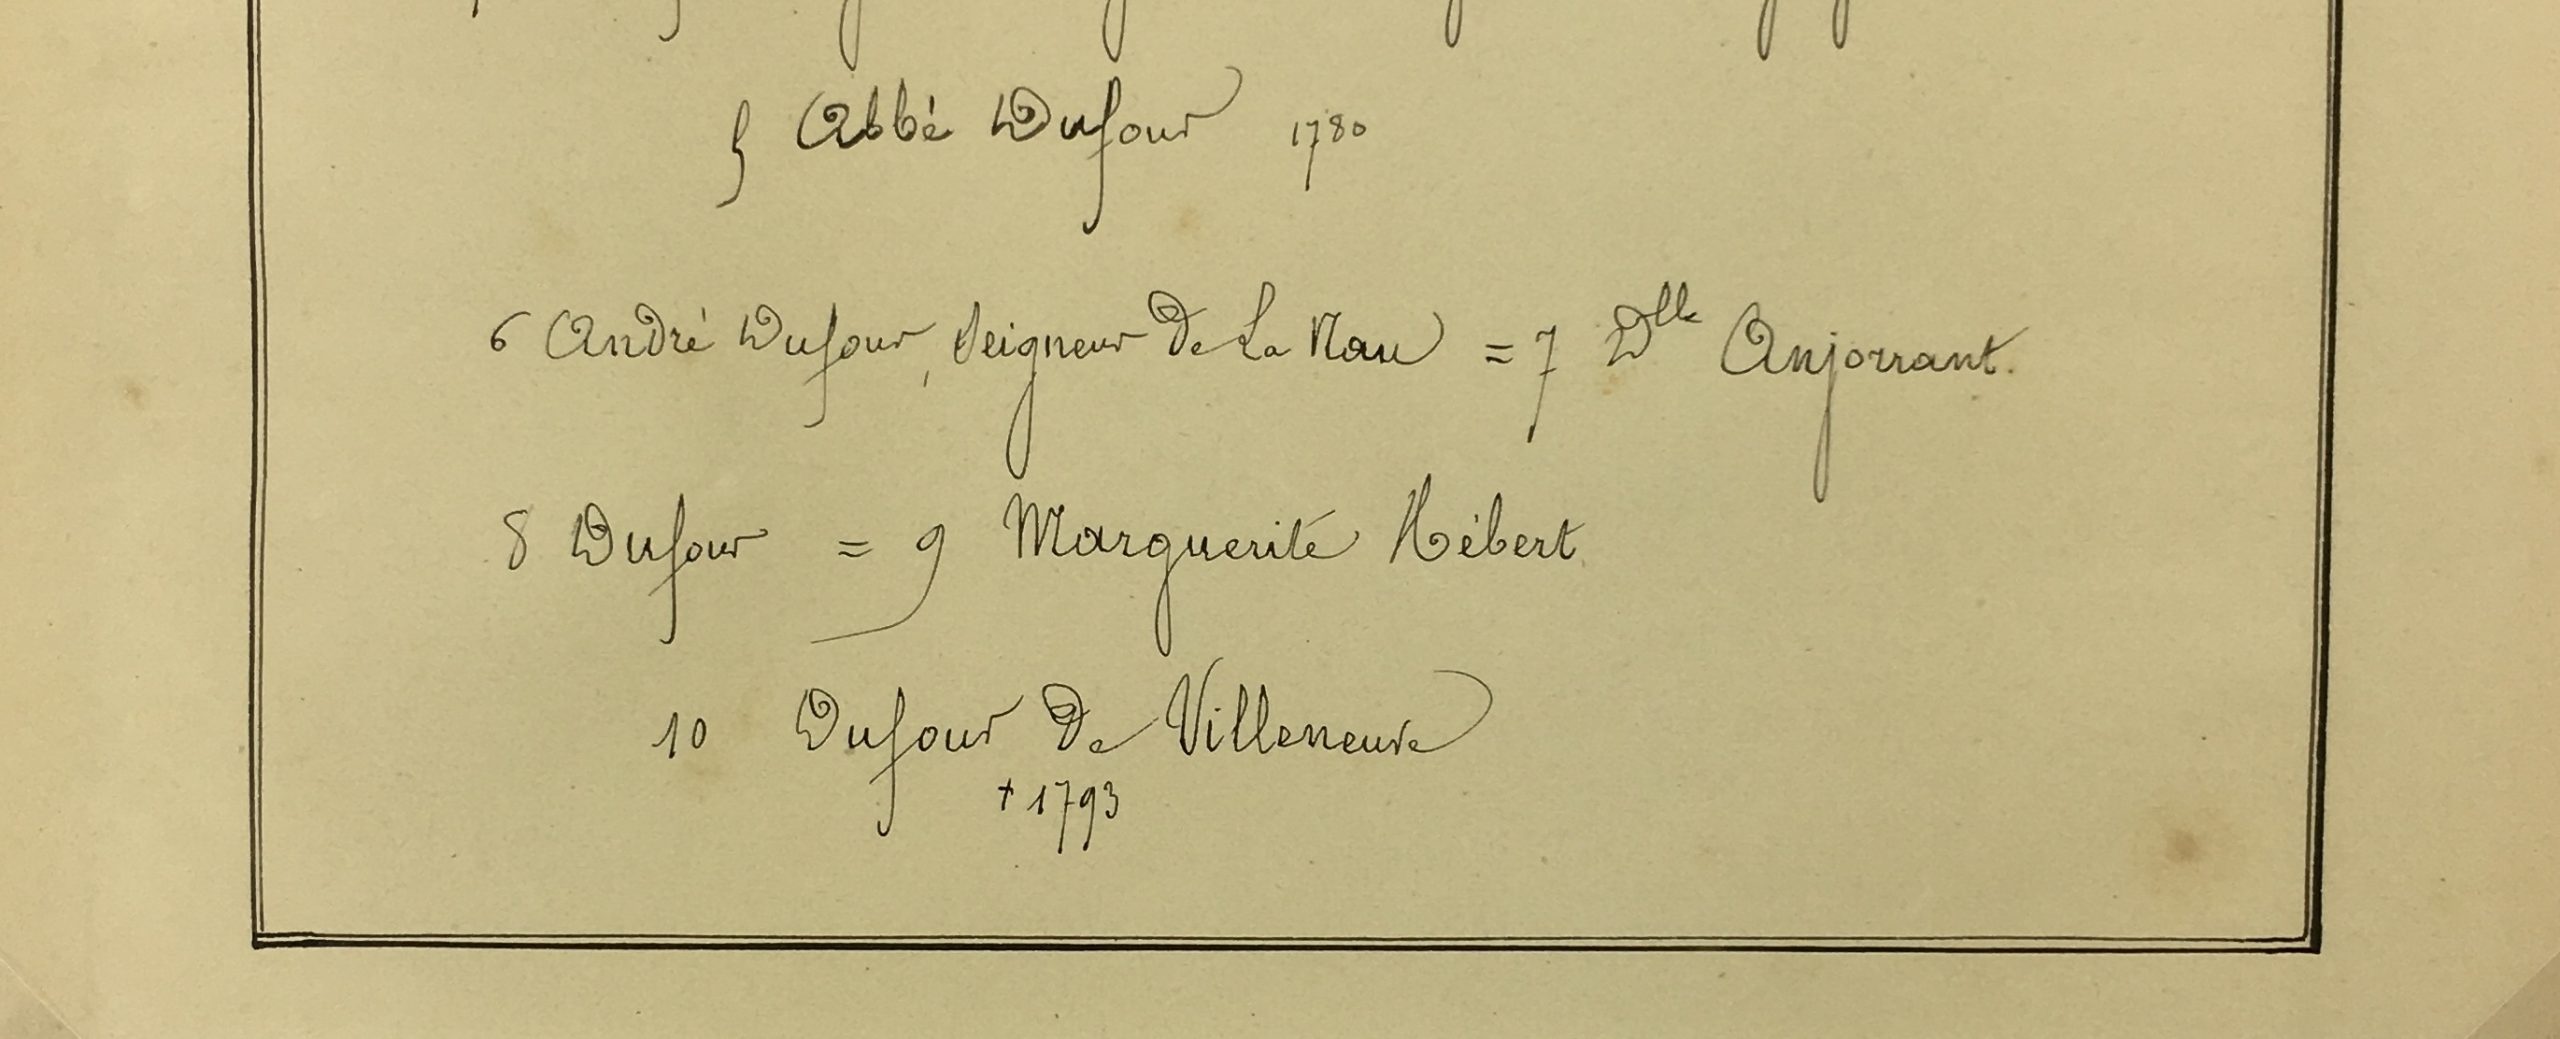 5 Abbé Dufour 1780
6 André Dufour, Seigneur de La Nau = 7 Dlle Anjorrant.
8 Dufour = 9 Marguerite Hébert
10 Dufour de Villeneuve
+ 1793